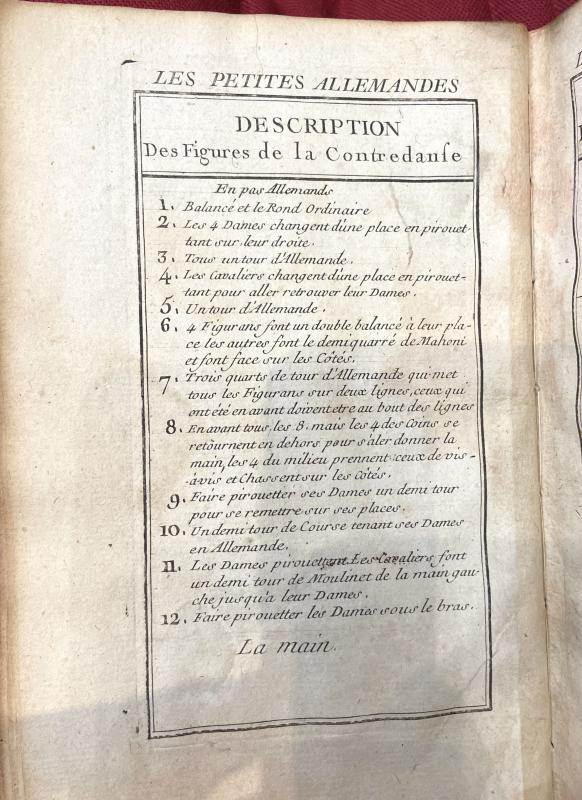 LES PETITES ALLEMANDES
DESCRIPTION
Des Figures de la Contredanse
En pas Allemands
1. Balancé et le Rond Ordinaire
2. Les 4 Dames changent d'une place en pirouet-
tant sur leur droite.
3. Tous un tour d'Allemande.
4. Les Cavaliers changent d'une place en pirouet-
tant pour aller retrouver leur Dames.
5. Un tour d'Allemande.
6. 4 Figurans font un double balancé à leur pla-
ce les autres font le demi quarré de Mahoni
et font face sur les Côtés.
7. Trois quarts de tour d'Allemande qui met
tous les Figurans sur deux lignes, ceux qui
ont été en avant doivent etre au bout des lignes
8. En avant tous les 8. mais les 4 des Coins se
retournent en dehors pour s'aler donner la
main, les 4 du milieu prennent ceux de vis-
-à-vis et Chassent sur les Côtés.
9. Faire pirouetter ses Dames un demi tour
pour se remettre sur ses places.
10. Un demi tour de Course tenant ses Dames
en Allemande.
11. Les Dames pirouettent Les Cavaliers font
un demi tour de Moulinet de la main gau-
che jusqu'a leur Dames.
12. Faire pirouetter les Dames sous le bras.
La main.